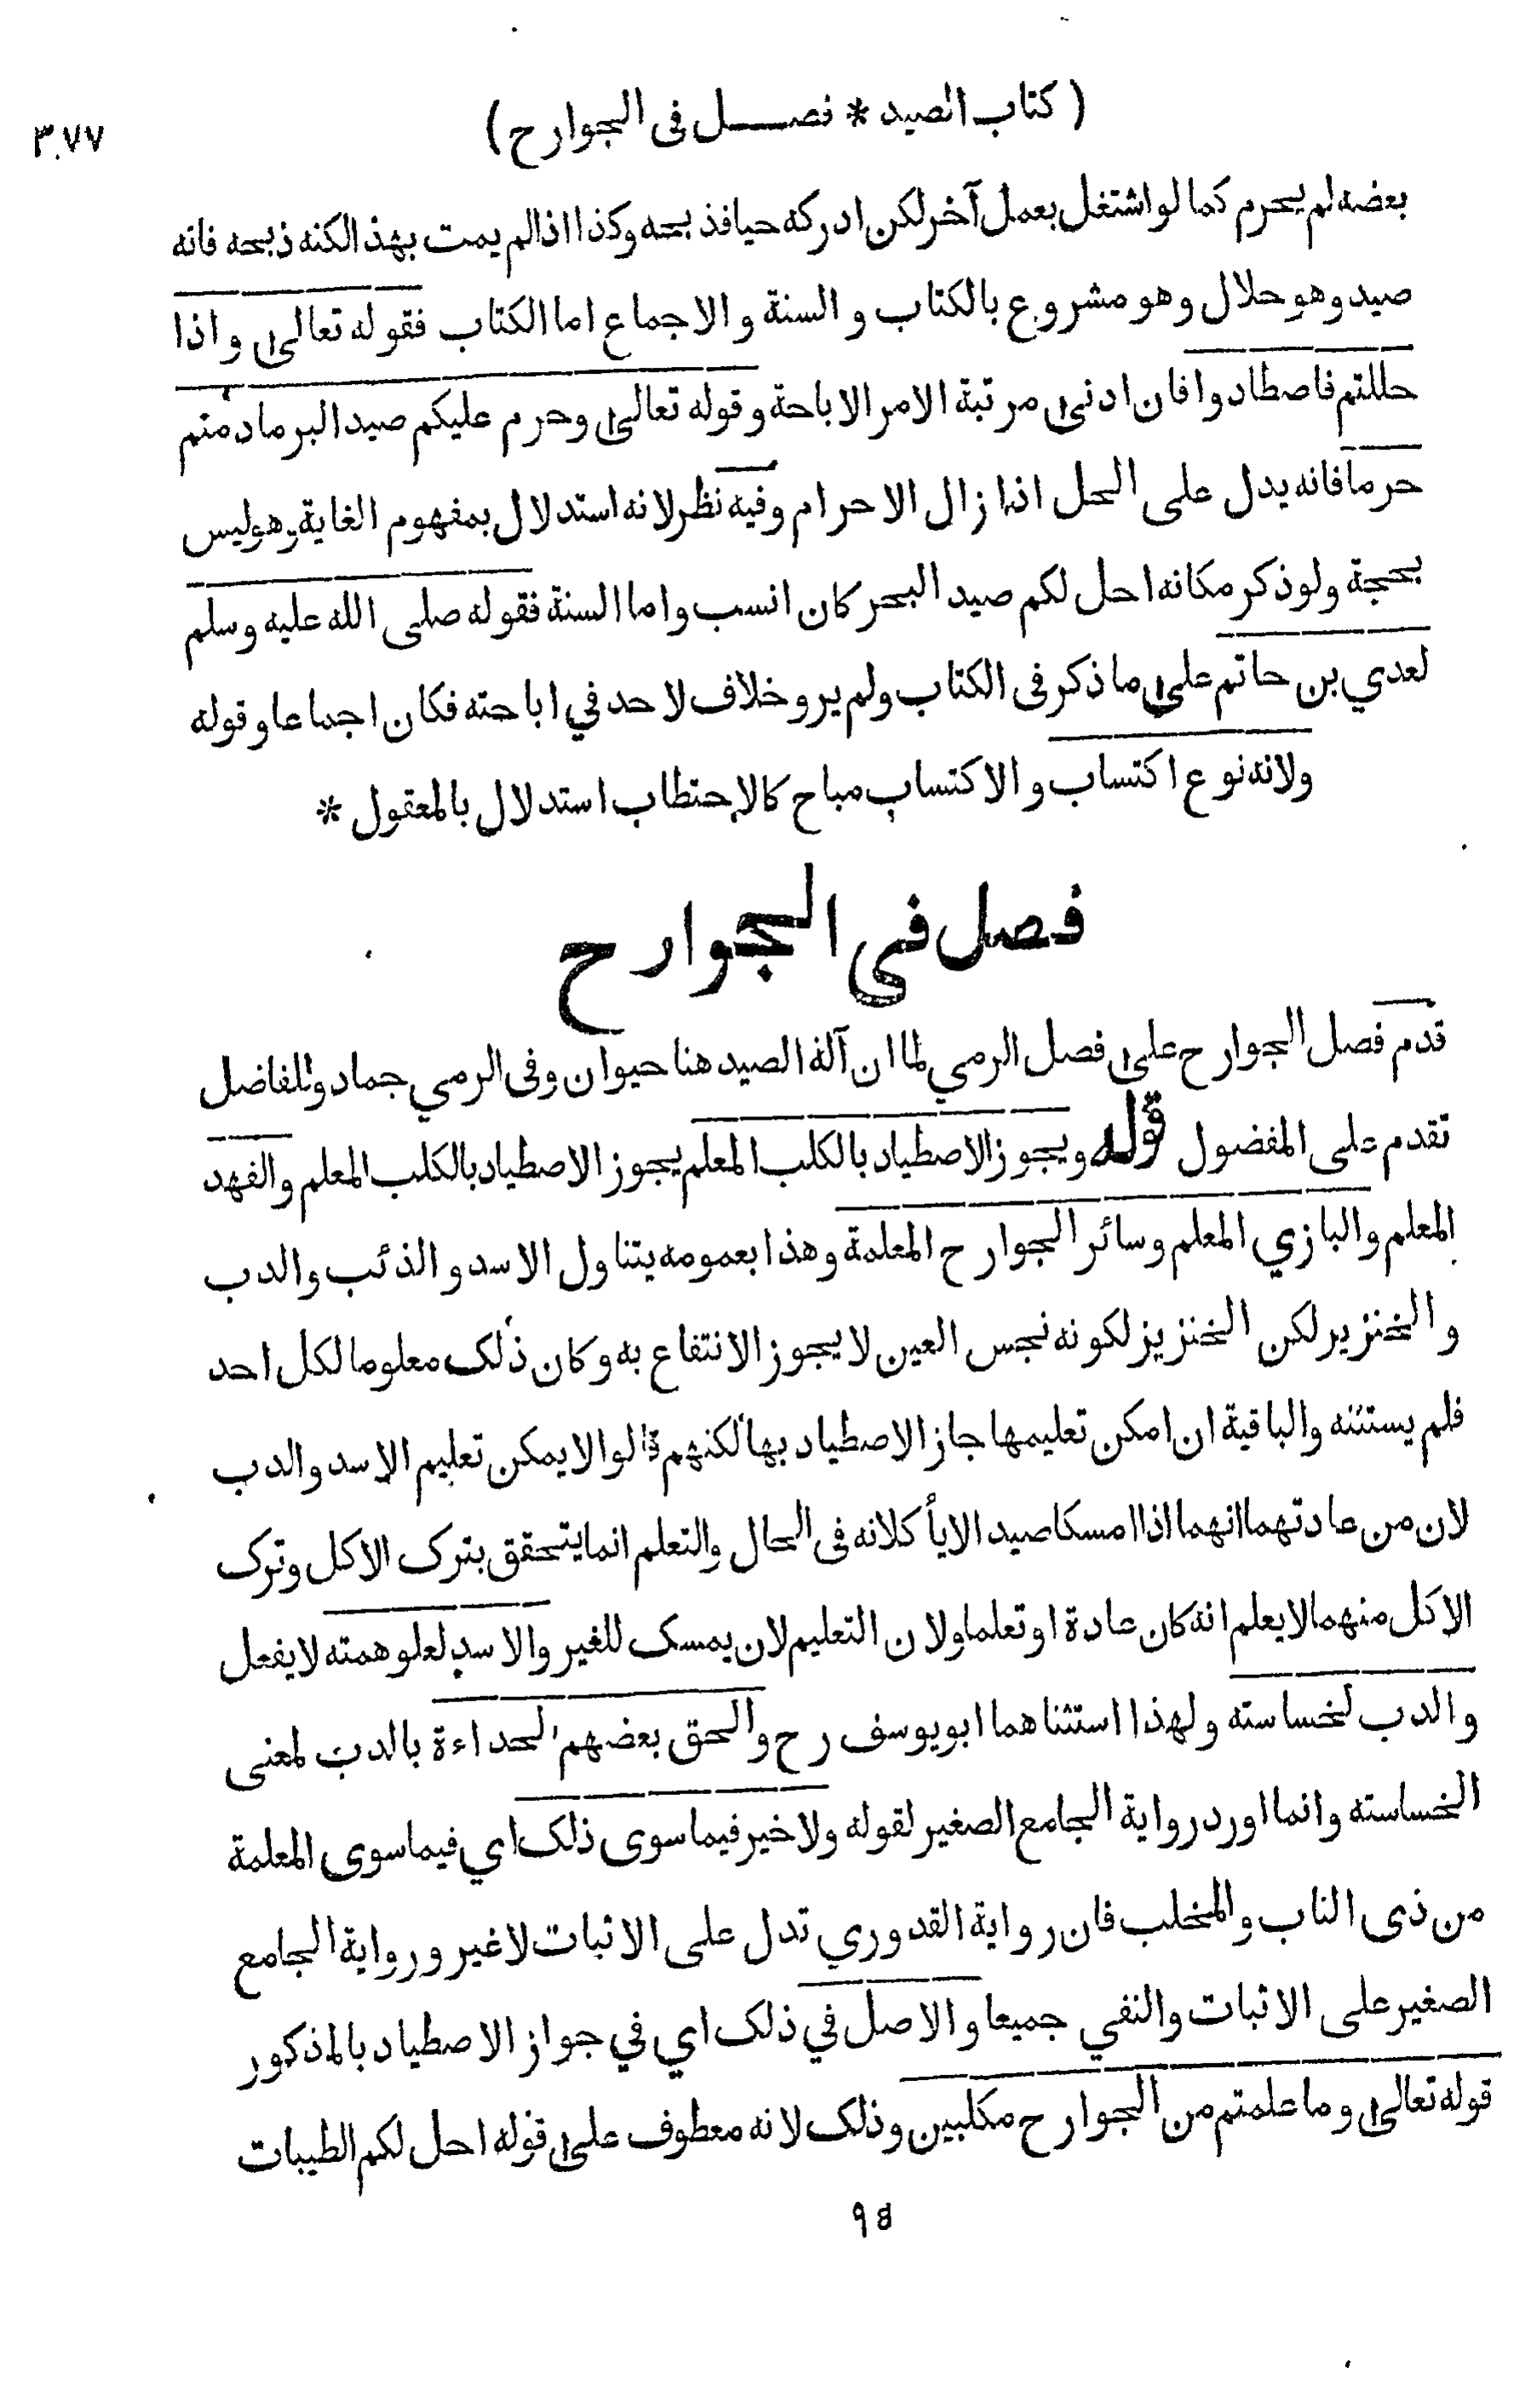 ( كتاب الصيد * فصـــل فى الجوارح )
٣٧٧
بعضه لم يحرم كما لو اشتغل بعمل آخر لكن ادركه حيا فذبحه وكذا اذا لم يمت بهذا لكنه ذبحه فانه
صيد وهو حلال وهو مشروع بالكتاب والسنة والاجماع اما الكتاب فقوله تعالى واذا
حللتم فاصطادوا فان ادنى مرتبة الامر الاباحة وقوله تعالى وحرم عليكم صيد البر مادمتم
حرما فانه يدل على الحل اذا زال الاحرام وفيه نظر لانه استدلال بمفهوم الغاية وهو ليس
بحجة ولو ذكر مكانه احل لكم صيد البحر كان انسب واما السنة فقوله صلى الله عليه وسلم
لعدي بن حاتم على ما ذكر فى الكتاب ولم يرو خلاف لاحد في اباحته فكان اجماعا وقوله
ولانه نوع اكتساب والاكتساب مباح كالاحتطاب استدلال بالمعقول *
فصل فى الجوارح
قدم فصل الجوارح على فصل الرمي لما ان آلة الصيد هنا حيوان وفى الرمي جماد وللفاضل
تقدم على المفضول قوله ويجوز الاصطياد بالكلب المعلم يجوز الاصطياد بالكلب المعلم والفهد
المعلم والبازي المعلم وسائر الجوارح المعلمة وهذا بعمومه يتناول الاسد والذئب والدب
والخنزير لكن الخنزير لكونه نجس العين لا يجوز الانتفاع به وكان ذلك معلوما لكل احد
فلم يستثنه والباقية ان امكن تعليمها جاز الاصطياد بها لكنهم قالوا لا يمكن تعليم الاسد والدب
لان من عادتهما انهما اذا امسكا صيدا لا يأكلانه فى الحال والتعلم انما يتحقق بترك الاكل وترك
الاكل منهما لا يعلم انه كان عادة او تعلما ولان التعليم لان يمسك للغير والاسد لعلو همته لا يفعل
والدب لخساسته ولهذا استثناهما ابو يوسف رح والحق بعضهم الحداءة بالدب لمعنى
الخساسته وانما اورد رواية الجامع الصغير لقوله ولا خير فيما سوى ذلك اي فيما سوى المعلمة
من ذى الناب والمخلب فان رواية القدوري تدل على الاثبات لا غير ورواية الجامع
الصغير على الاثبات والنفي جميعا والاصل في ذلك اي في جواز الاصطياد بالمذكور
قوله تعالى وما علمتم من الجوارح مكلبين وذلك لانه معطوف على قوله احل لكم الطيبات